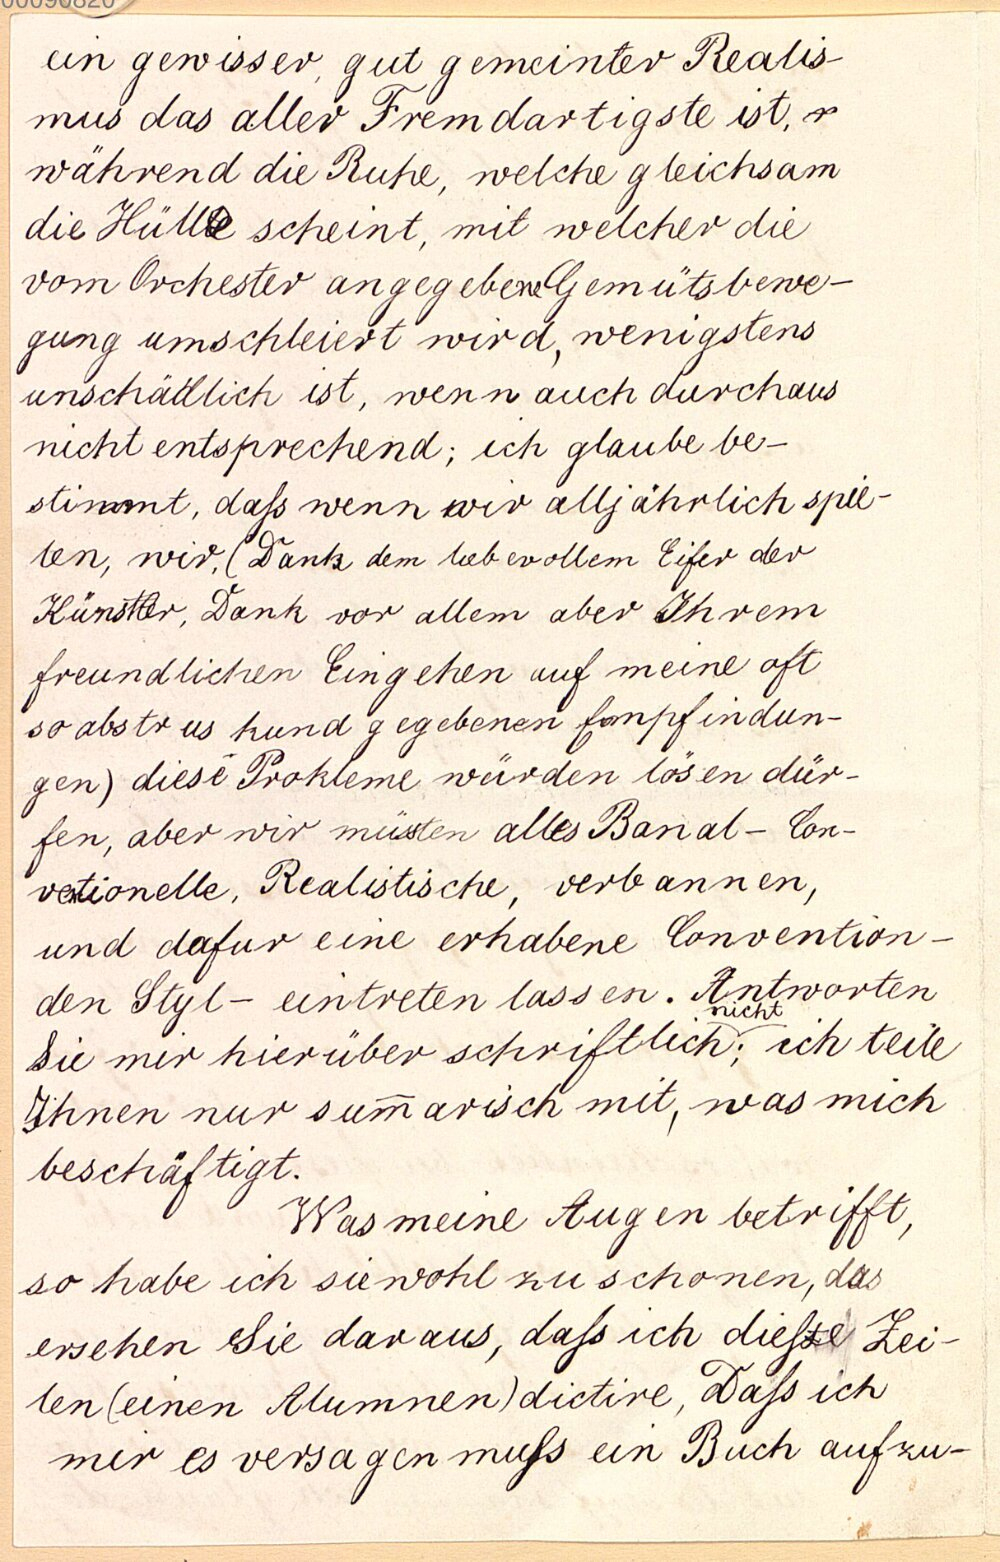 00090820
ein gewisser, gut gemeinter Realis-
mus das aller Fremdartigste ist,
während die Ruhe, welche gleichsam
die Hülle scheint, mit welcher die
vom Orchester angegebene Gemütsbewe-
gung umschleiert wird, wenigstens
unschädlich ist, wenn auch durchaus
nicht entsprechend; ich glaube be-
stimmt, daſs wenn wir alljährlich spiel-
ten, wir, (Dank dem liebevollem Eifer der
Künstler, Dank vor allem aber Ihrem
freundlichen Eingehen auf meine oft
so abstrus kund gegebenen Empfindun-
gen) diese Probleme würden lösen dür-
fen, aber wir müssten alles Banal- Con-
ventionelle, Realistische, verbannen,
und dafur eine erhabene Convention-
den Styl- eintreten lassen. Antworten
nicht
Sie mir hierüber schriftlich; ich teile
Ihnen nur sum̄arisch mit, was mich
beschäftigt.
Was meine Augen betrifft,
so habe ich sie wohl zu schonen, das
ersehen Sie daraus, daſs ich dieſe Zei-
len (einen Alumnen) dictire, Daſs ich
mir es versagen muſs ein Buch aufzu-